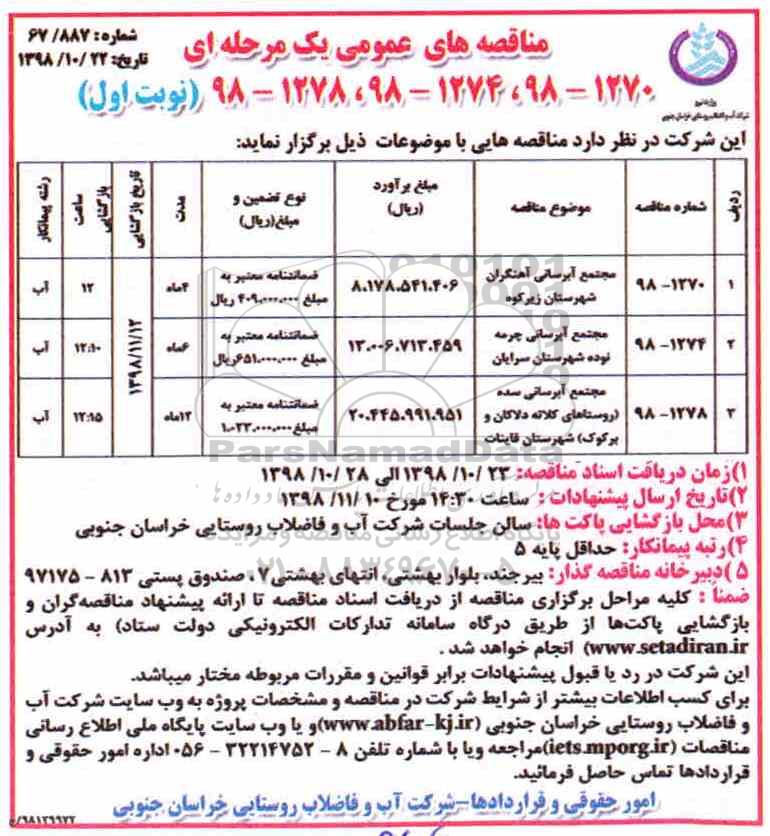 شماره: ۶۷/۸۸۷
تاریخ: ۲۲ /۱۰/ ۱۳۹۸
مناقصه های عمومی یک مرحله ای
۱۲۷۰ – ۹۸، ۱۲۷۴ – ۹۸، ۱۲۷۸ – ۹۸ (نوبت اول)
وزارت نیرو
شرکت آب و فاضلاب روستایی خراسان جنوبی
این شرکت در نظر دارد مناقصه هایی با موضوعات ذیل برگزار نماید:
ردیف | شماره مناقصه | موضوع مناقصه | مبلغ برآورد (ریال) | نوع تضمین و مبلغ(ریال) | مدت | تاریخ بازگشایی | ساعت بازگشایی | رشته پیمانکار
۱ | ۱۲۷۰–۹۸ | مجتمع آبرسانی آهنگران شهرستان زیرکوه | ۸.۱۷۸.۵۴۱.۴۰۶ | ضمانتنامه معتبر به مبلغ ۴۰۹.۰۰۰.۰۰۰ ریال | ۴ماه | ۱۳۹۸/۱۱/۱۲ | ۱۲ | آب
۲ | ۱۲۷۴–۹۸ | مجتمع آبرسانی چرمه نوده شهرستان سرایان | ۱۳.۰۰۶.۷۱۳.۴۵۹ | ضمانتنامه معتبر به مبلغ ۶۵۱.۰۰۰.۰۰۰ریال | ۶ماه | ۱۲:۱۰ | آب
۳ | ۱۲۷۸–۹۸ | مجتمع آبرسانی سده (روستاهای کلاته دلاکان و برکوک) شهرستان قاینات | ۲۰.۴۴۵.۹۹۱.۹۵۱ | ضمانتنامه معتبر به مبلغ ۱.۰۲۳.۰۰۰.۰۰۰ | ۱۲ماه | ۱۲:۱۵ | آب
ParsNamadData
۱)زمان دریافت اسناد مناقصه: ۲۳ /۱۰/ ۱۳۹۸ الی ۲۸ /۱۰/ ۱۳۹۸
۲)تاریخ ارسال پیشنهادات : ساعت ۱۴:۳۰ مورخ ۱۰ /۱۱/ ۱۳۹۸
۳)محل بازگشایی پاکت ها: سالن جلسات شرکت آب و فاضلاب روستایی خراسان جنوبی
۴)رتبه پیمانکار: حداقل پایه ۵
۵)دبیرخانه مناقصه گذار: بیرجند، بلوار بهشتی، انتهای بهشتی۷، صندوق پستی ۸۱۳ – ۹۷۱۷۵
ضمنا : کلیه مراحل برگزاری مناقصه از دریافت اسناد مناقصه تا ارائه پیشنهاد مناقصه‌گران و
بازگشایی پاکت‌ها از طریق درگاه سامانه تدارکات الکترونیکی دولت ستاد) به آدرس
www.setadiran.ir) انجام خواهد شد .
این شرکت در رد یا قبول پیشنهادات برابر قوانین و مقررات مربوطه مختار میباشد.
برای کسب اطلاعات بیشتر از شرایط شرکت در مناقصه و مشخصات پروژه به وب سایت شرکت آب
و فاضلاب روستایی خراسان جنوبی (www.abfar-kj.ir)و یا وب سایت پایگاه ملی اطلاع رسانی
مناقصات (iets.mporg.ir)مراجعه ویا با شماره تلفن ۸ – ۳۲۲۱۴۷۵۲ – ۰۵۶ اداره امور حقوقی و
قراردادها تماس حاصل فرمائید.
امور حقوقی و قراردادها–شرکت آب و فاضلاب روستایی خراسان جنوبی
۹۸۱۲۶۹۲۲/م